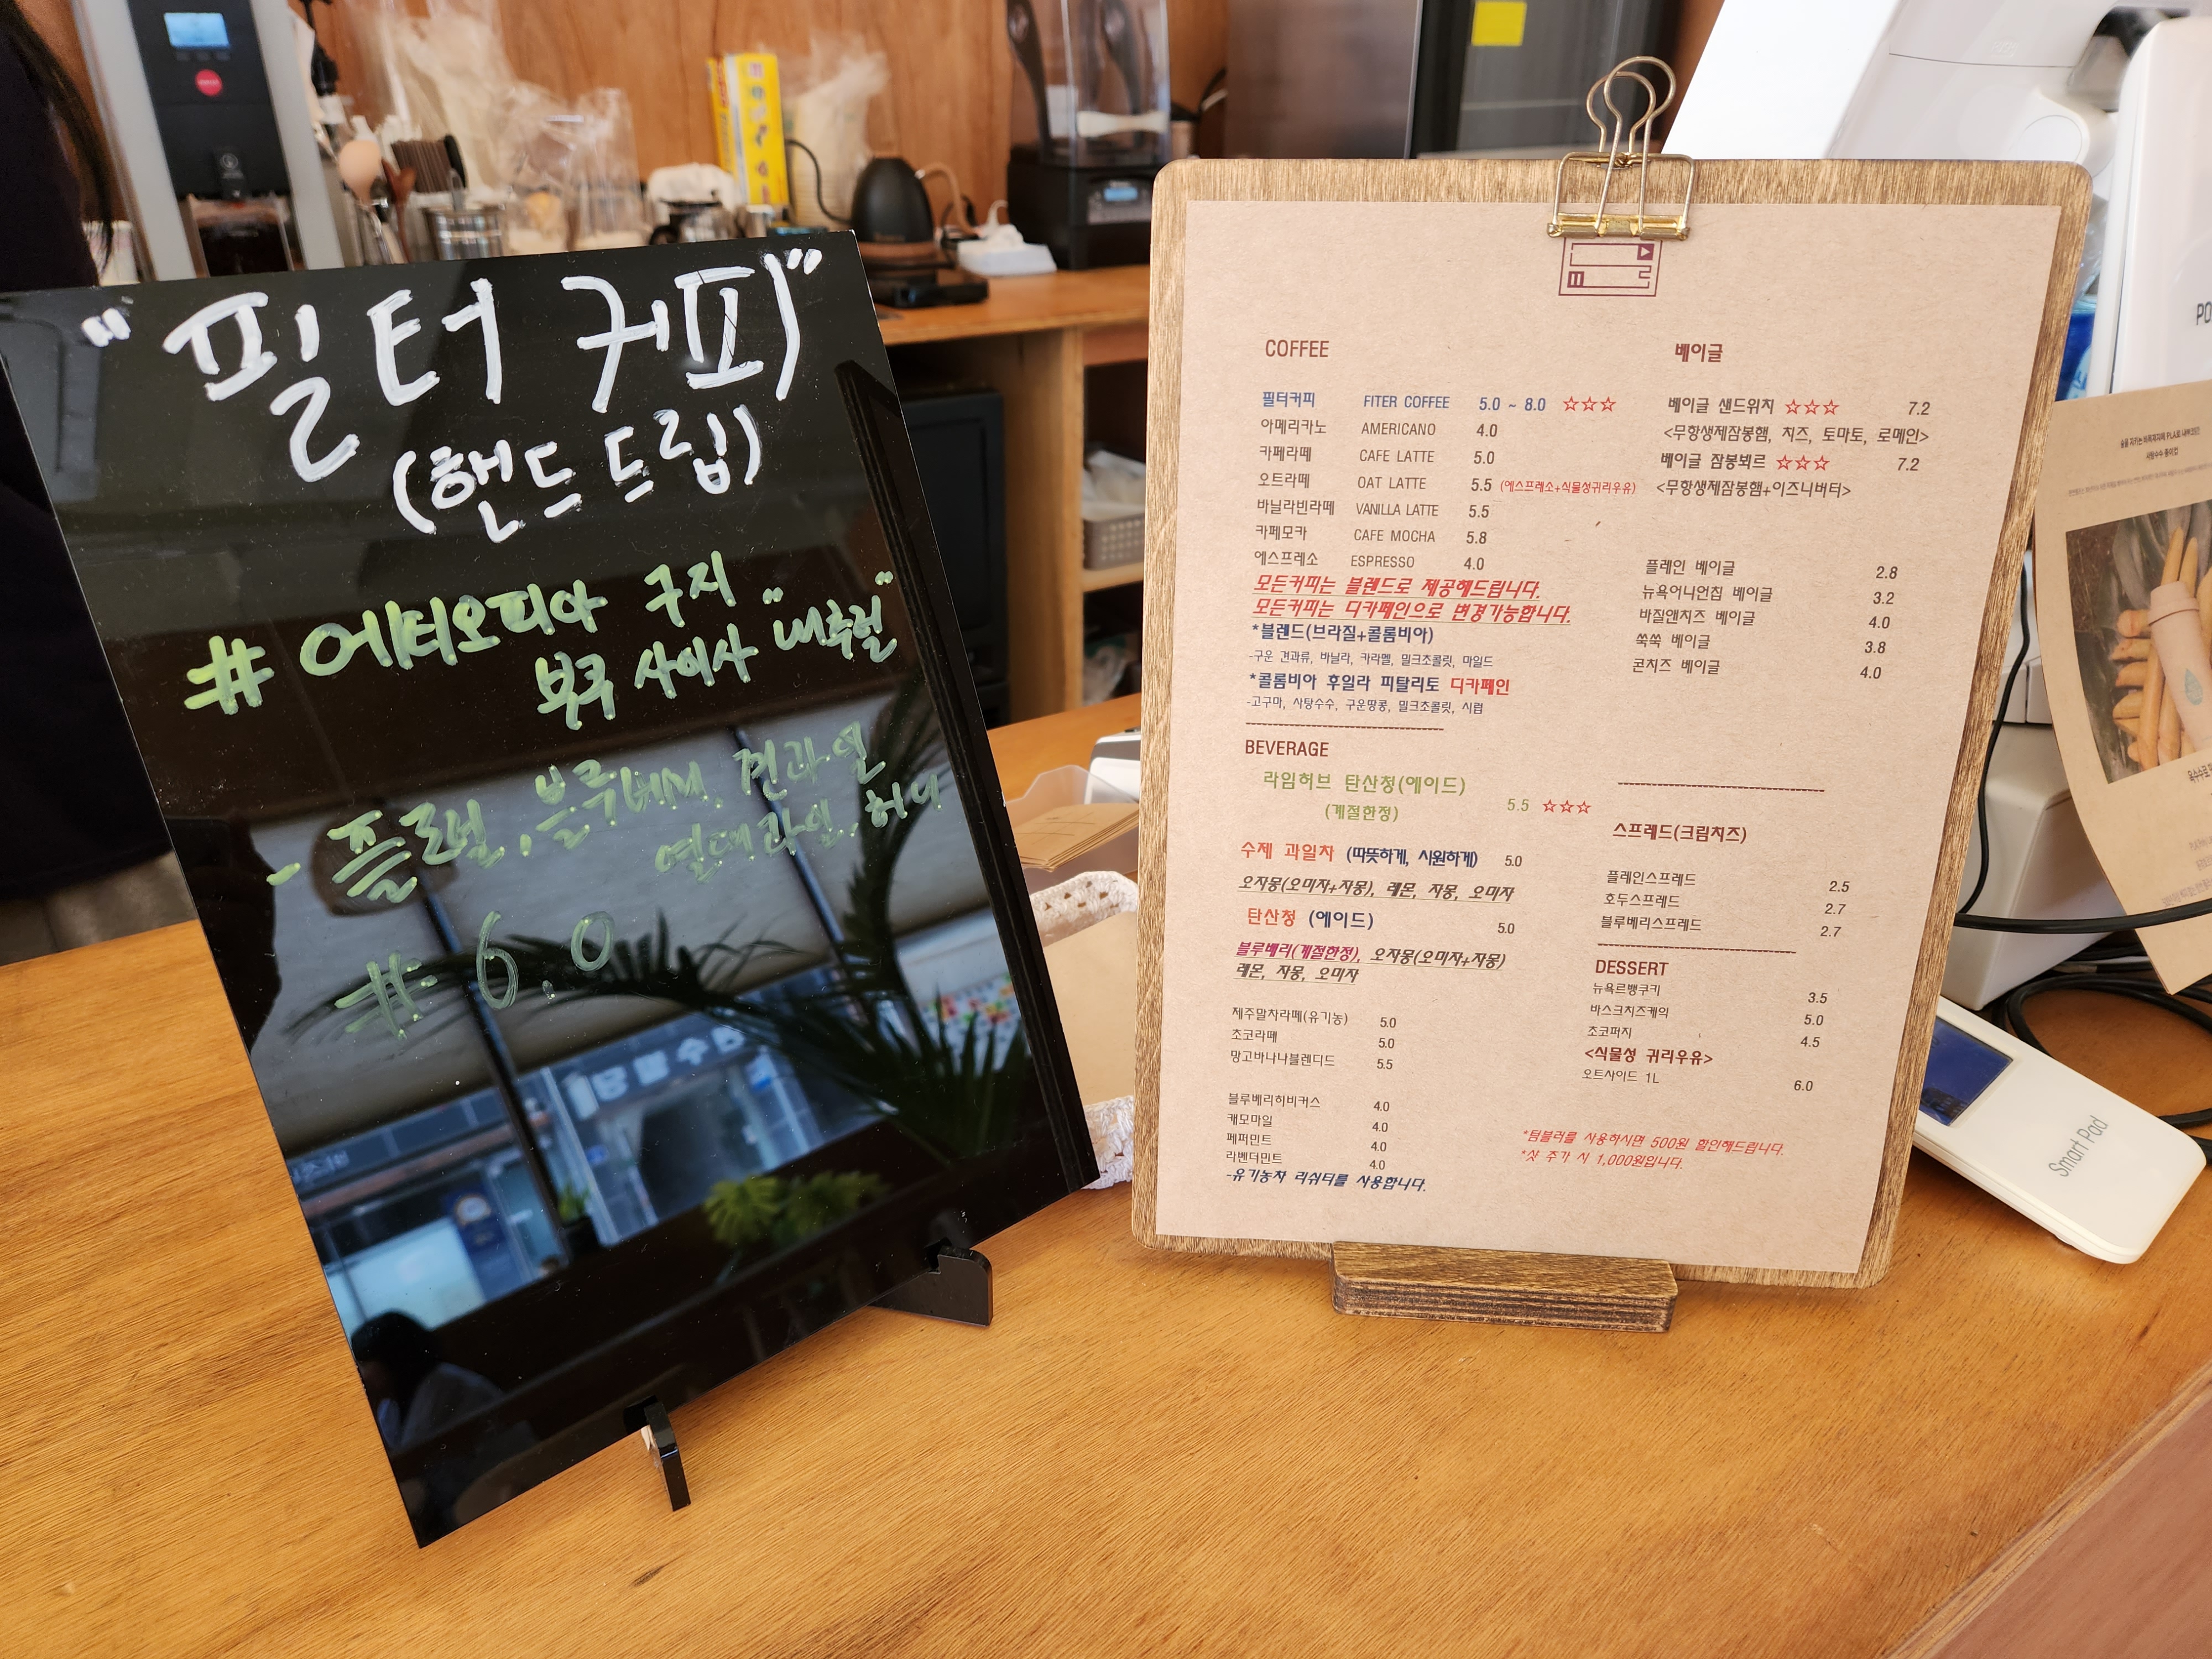 "필터 커피"
(핸드드립)
# 에티오피아 구지
보쿠 사이사 "내추럴"
- 플로럴, 블루베리, 견과일
열대과일, 허니
# 6.0
COFFEE
필터커피 FITER COFFEE 5.0 ~ 8.0 ☆☆☆
아메리카노 AMERICANO 4.0
카페라떼 CAFE LATTE 5.0
오트라떼 OAT LATTE 5.5 (에스프레소+식물성귀리우유)
바닐라빈라떼 VANILLA LATTE 5.5
카페모카 CAFE MOCHA 5.8
에스프레소 ESPRESSO 4.0
모든커피는 블렌드로 제공해드립니다.
모든커피는 디카페인으로 변경가능합니다.
*블렌드(브라질+콜롬비아)
-구운 견과류, 바닐라, 카라멜, 밀크초콜릿, 마일드
*콜롬비아 후일라 피탈리토 디카페인
-고구마, 사탕수수, 구운땅콩, 밀크초콜릿, 시럽
BEVERAGE
라임허브 탄산청(에이드)
(계절한정) 5.5 ☆☆☆
수제 과일차 (따뜻하게, 시원하게) 5.0
오자몽(오미자+자몽), 레몬, 자몽, 오미자
탄산청 (에이드) 5.0
블루베리(계절한정), 오자몽(오미자+자몽)
레몬, 자몽, 오미자
제주말차라떼(유기농) 5.0
초코라떼 5.0
망고바나나블렌디드 5.5
블루베리히비커스 4.0
캐모마일 4.0
페퍼민트 4.0
라벤더민트 4.0
-유기농차 리쉬티를 사용합니다.
베이글
베이글 샌드위치 ☆☆☆ 7.2
<무항생제잠봉햄, 치즈, 토마토, 로메인>
베이글 잠봉뵈르 ☆☆☆ 7.2
<무항생제잠봉햄+이즈니버터>
플레인 베이글 2.8
뉴욕어니언칩 베이글 3.2
바질앤치즈 베이글 4.0
쑥쑥 베이글 3.8
콘치즈 베이글 4.0
스프레드(크림치즈)
플레인스프레드 2.5
호두스프레드 2.7
블루베리스프레드 2.7
DESSERT
뉴욕르뱅쿠키 3.5
바스크치즈케익 5.0
초코퍼지 4.5
<식물성 귀리우유>
오트사이드 1L 6.0
*텀블러를 사용하시면 500원 할인해드립니다.
*샷 추가 시 1,000원입니다.
Smart Pad
PO